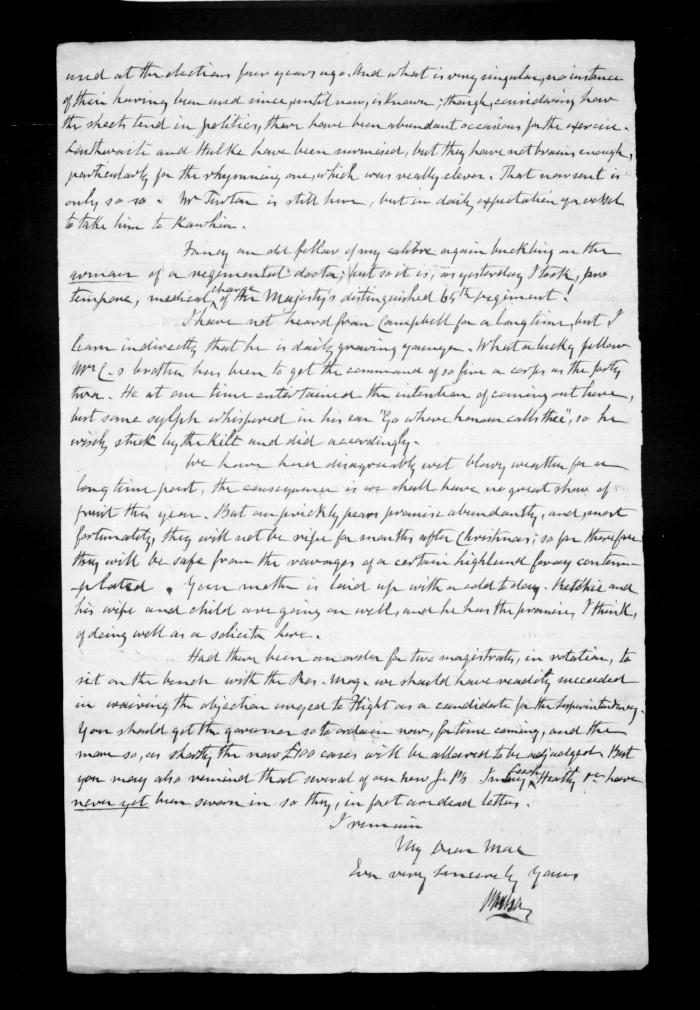 used at the elections four years ago. And what is very singular, no instance
of their having been used since, until now, is known; though, considering how
the sheets tend in politics, there have been abundant occasions for the exercise.
and Hulke have been surmised, but they have not brains enough,
particularly for the rhymning one, which was really clever. That now sent is
only so so. Mr Turton is still here, but in daily expectation of a vessel
to take him to Kawhia.
Fancy an old fellow of my calibre again buckling on the
armour of a regimental doctor; but so it is, as yesterday I took, pro
tempore, medical charge of Her Majesty's distinguished 65th regiment!
I have not heard from Campbell for a long time, but I
learn indirectly that he is daily growing younger. What a lucky fellow
Mrs C-s brother has been to get the command of so fine a corps as the forty
two. He at one time entertained the intention of coming out here,
but some sylph whispered in his ear "Go where honour calls thee", so he
wisely stuck by the kilt and did accordingly.
We have had disagreeably wet blowy weather for a
long time past, the consequence is we shall have no great show of
fruit this year. But our prickly pears promise abundantly, and, most
fortunately, they will not be ripe for months after Christmas; so far therefore
they will be safe from the ravages of a certain highland foray contem-
plated. Your mother is laid up with a cold today. Ritchie and
his wife and child are going on well, and he has the promise, I think,
of doing well as a solicitor here.
Had there been an order for two magistrates, in rotation, to
sit on the bench with the Res. Mag. we should have readily succeeded
in waiving the objection urged to Flight as a candidate for the Superintendency.
You should get the governor so to ordain now, for time coming, and the
more so, as shortly the new £100 cases will be allowed to be adjudged. But
you may also remind that several of our new J. Ps. Heath &c have
never yet been sworn in so they, in fact are dead letters.
I remain
My Dear Mac
Ever very sincerely Yours